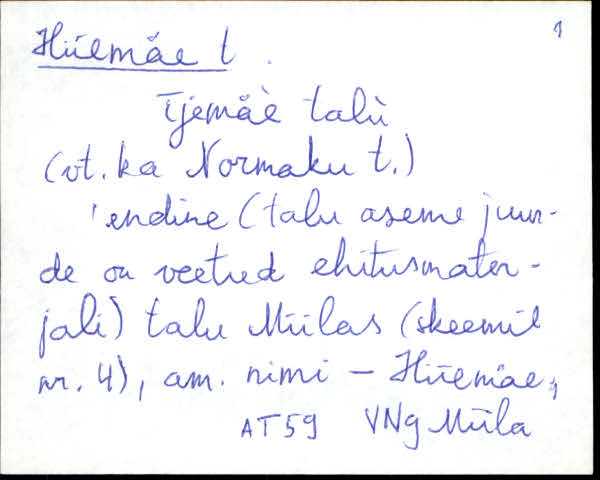 1
Hiiemäe t.
Ijemäè talù
(vt. ka Normaku t.)
'endine (talu aseme juur-
de on veetud ehitusmater-
jali) talu Miilas (skeemil
nr. 4), am. nimi – Hiiemäe,
AT59 VNg Miila